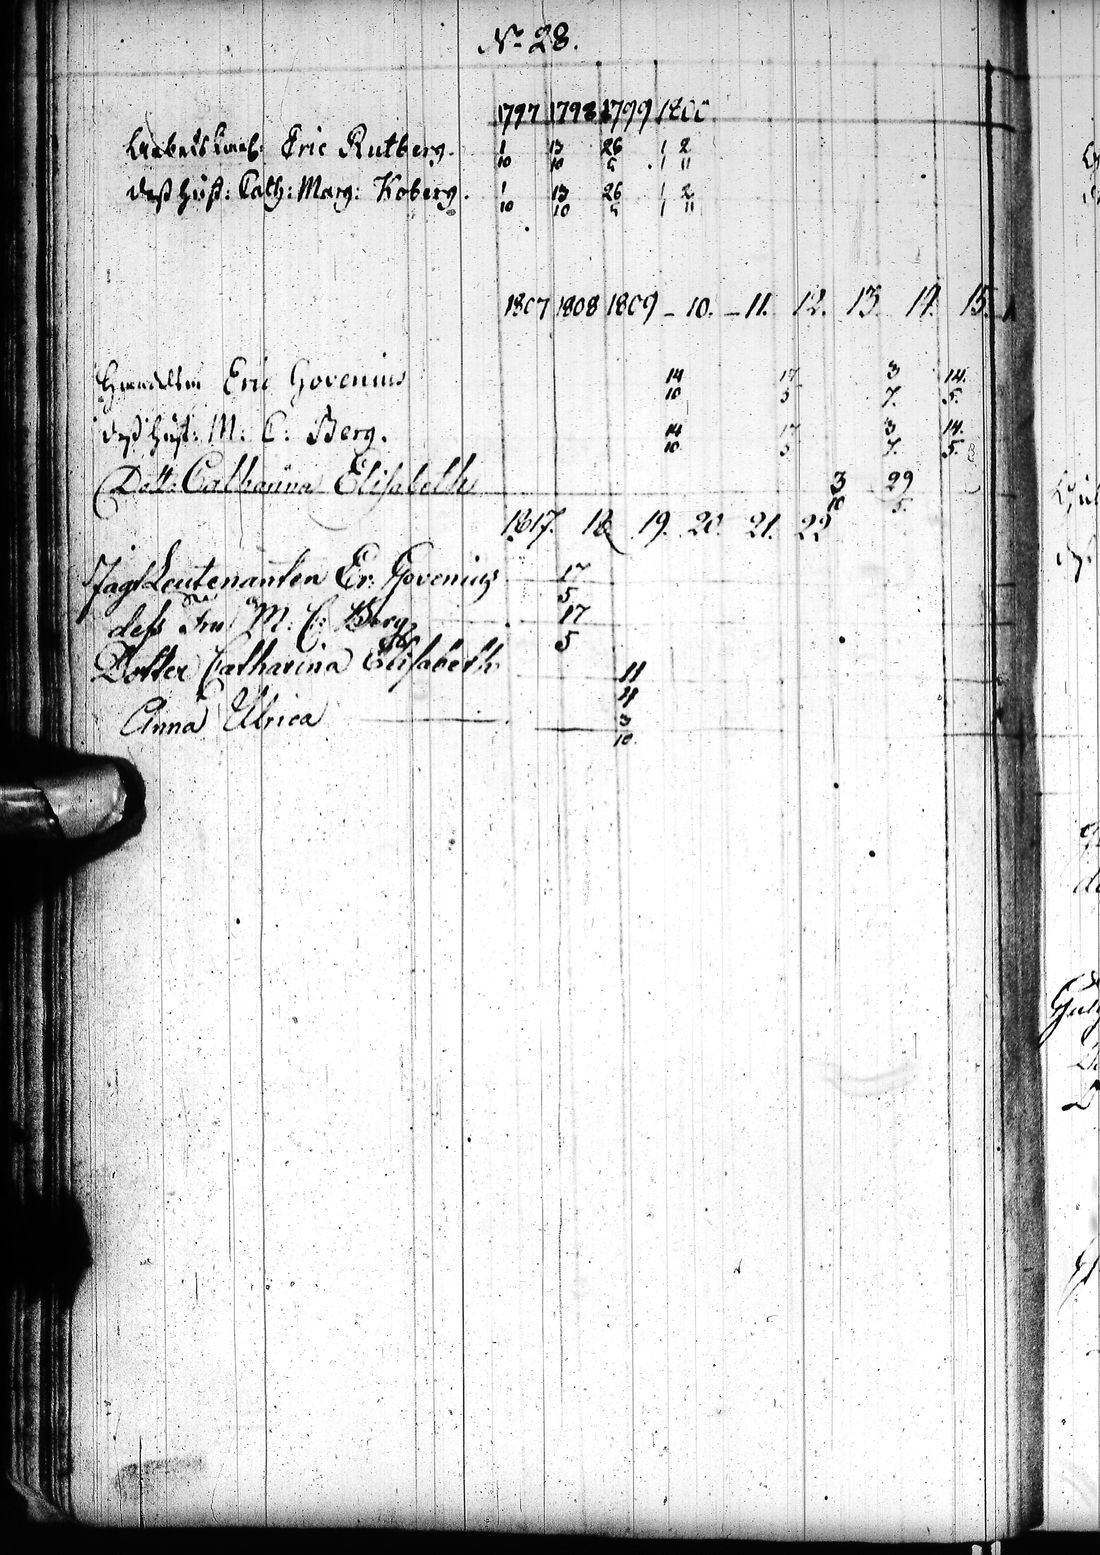 No 28.
1797 1798 1799 1800
Eric Rutberg. 1/10 13/10 26/5 1/1 2/11
deß hust: Cath: Marg: Koberg. 1/10 13/10 26/5 1/1 2/11
1807 1808 1809 - 10. - 11. 12. 13. 14. 15.
Handelsm Eric Govenius 14/10 17/5 3/7. 14./5.
deß hust: M: C: Berg. 14/10 17/5 3/7. 14./5.
Dott: Catharina Elisabeth 3/10 29/5.
1817. 18 19. 20. 21. 22
Jagt Leutenanten Er: Govenius 17/5
dess Fru M: C: Berg 17/5
Dotter Catharina Elisabeth 11/4
Anna Ulrica 3/10.